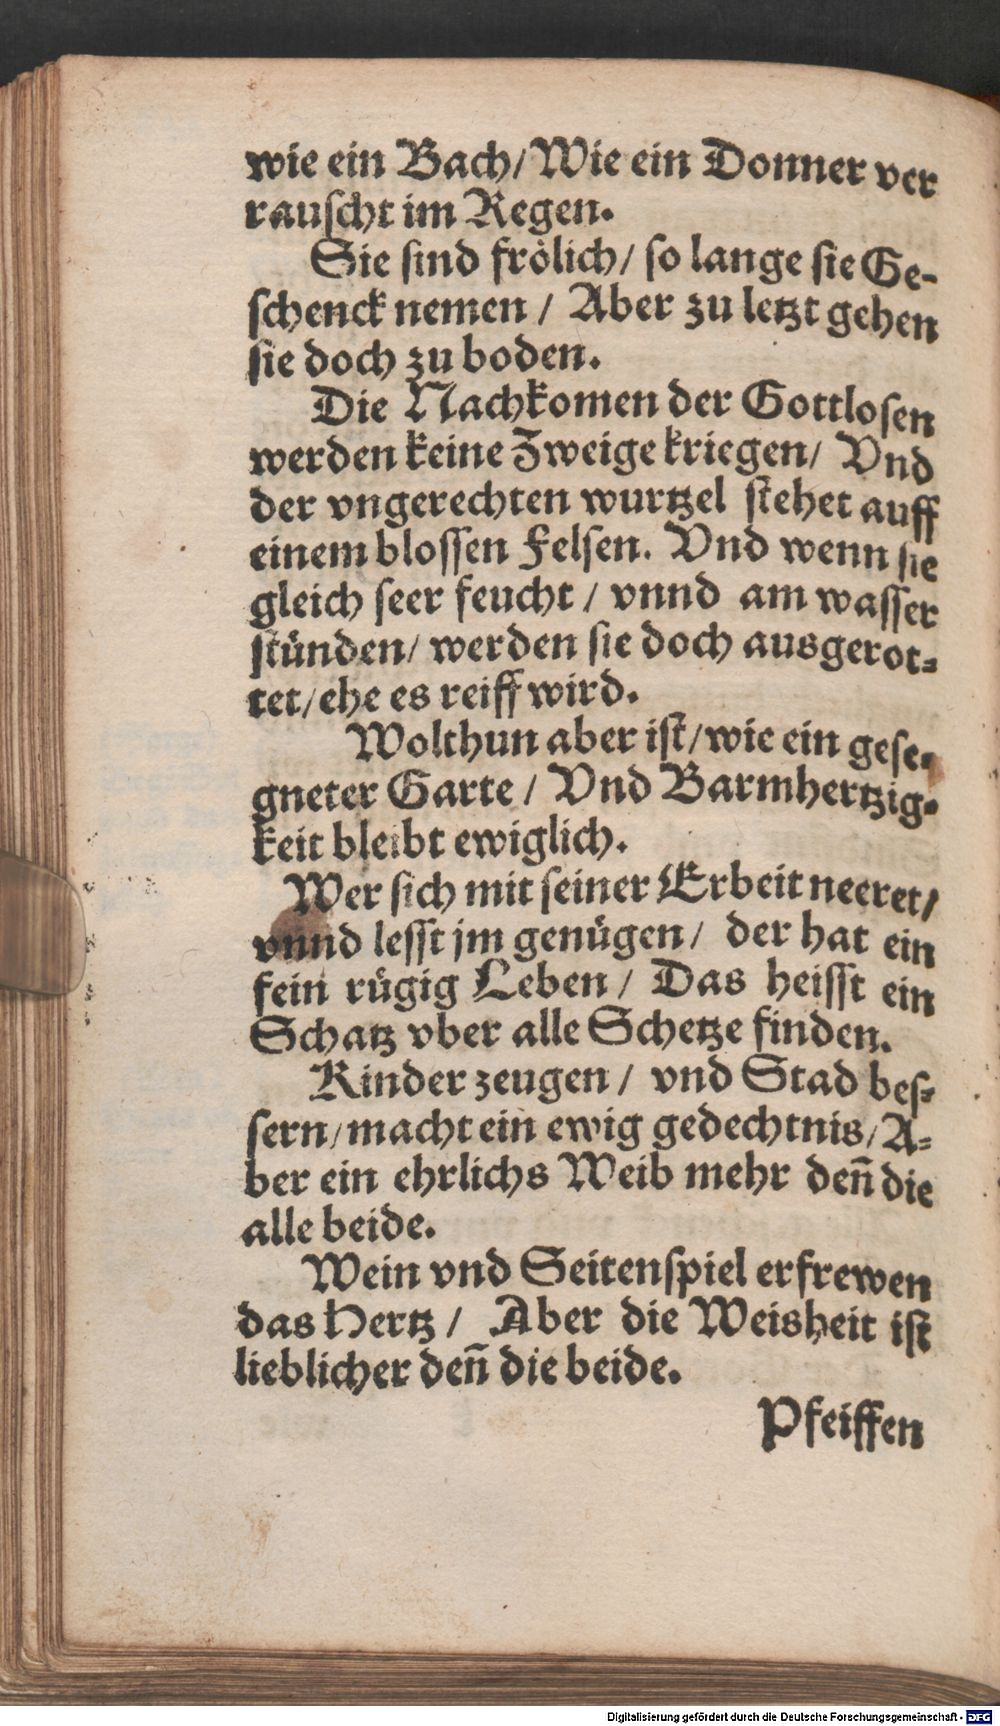 wie ein Bach/Wie ein Donner ver
rauscht im Regen.
Sie sind frölich/ so lange sie Ge-
schenck nemen / Aber zu letzt gehen
sie doch zu boden.
Die Nachkomen der Gottlosen
werden keine Zweige kriegen/ Vnd
der vngerechten wurtzel stehet auff
einem blossen Felsen. Vnd wenn sie
gleich seer feucht / vnnd am wasser
stünden/ werden sie doch ausgerot-
tet/ehe es reiff wird.
Wolthun aber ist/wie ein gese-
gneter Garte / Vnd Barmhertzig-
keit bleibt ewiglich.
Wer sich mit seiner Erbeit neeret/
vnnd lesst jm genügen/ der hat ein
fein rügig Leben / Das heisst ein
Schatz vber alle Schetze finden.
Kinder zeugen / vnd Stad bes-
sern/macht ein ewig gedechtnis/A-
ber ein ehrlichs Weib mehr deñ die
alle beide.
Wein vnd Seitenspiel erfrewen
das Hertz / Aber die Weisheit ist
lieblicher deñ die beide.
Pfeiffen
Digitalisierung gefördert durch die Deutsche Forschungsgemeinschaft - DFG